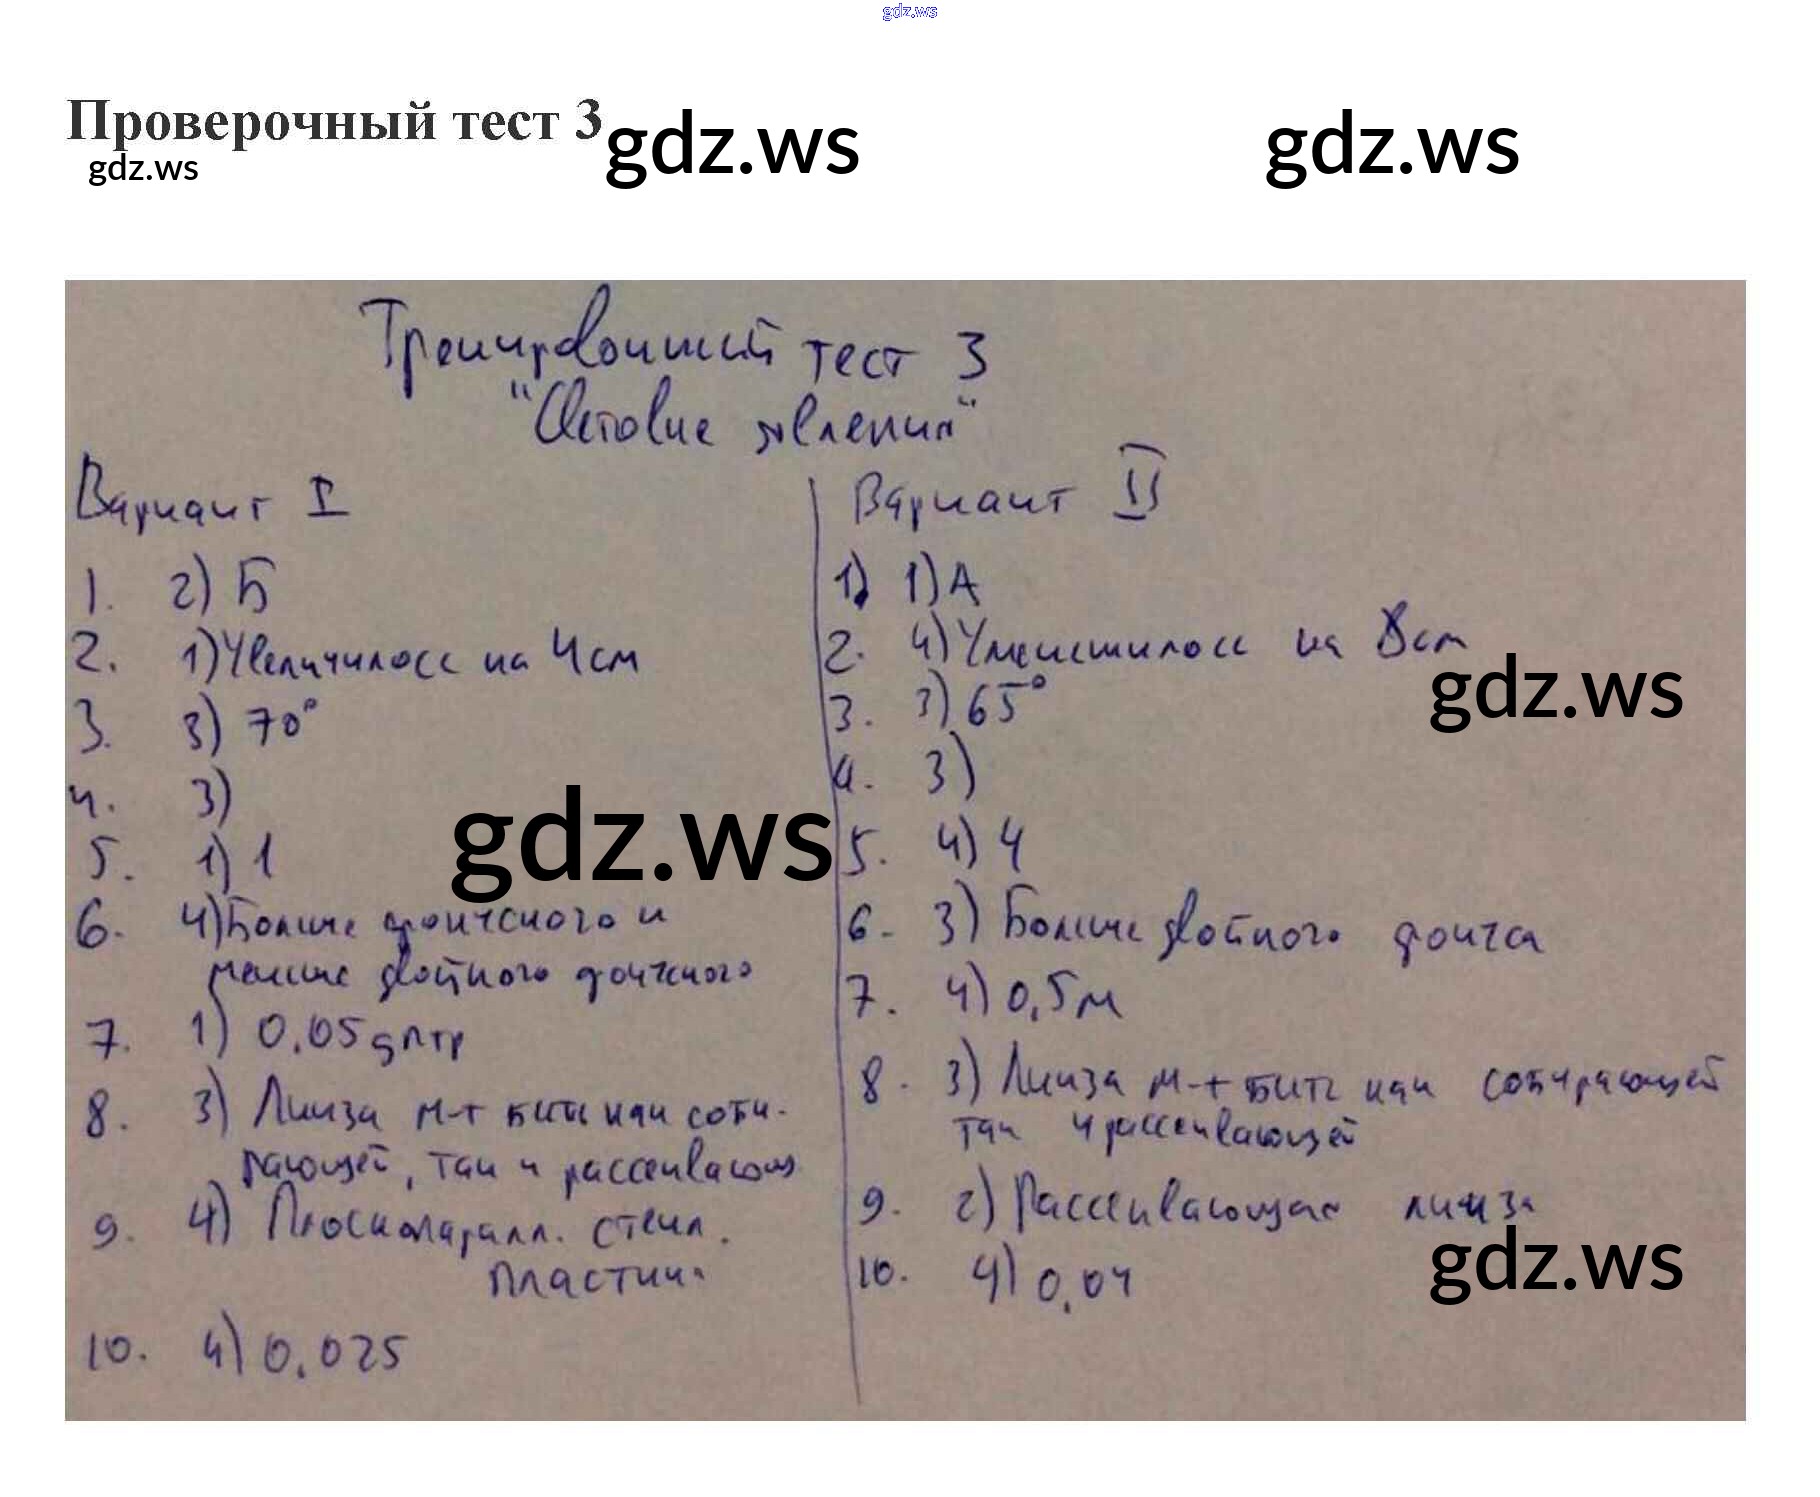 gdz.ws
Проверочный тест 3
gdz.ws
gdz.ws
gdz.ws
Тренировочный тест 3
"Световые явления"
Вариант I
1. 2) Б
2. 1) Увеличилось на 4 см
3. 3) 70°
4. 3)
5. 1) 1
gdz.ws
6. 4) Больше фокусного и
меньше двойного фокусного
7. 1) 0,05 дптр
8. 3) Линза м-т быть как соби-
рающей, так и рассеивающ
9. 4) Плоскопаралл. стекл.
пластин
10. 4) 0,025
Вариант II
1) 1) А
2. 4) Уменьшилось на 8 см
gdz.ws
3. 3) 65°
4. 3)
5. 4) 4
6. 3) Больше двойного фокуса
7. 4) 0,5 м
8. 3) Линза м-т быть как собирающей
так и рассеивающей
9. 2) Рассеивающая линза
gdz.ws
10. 4) 0,04